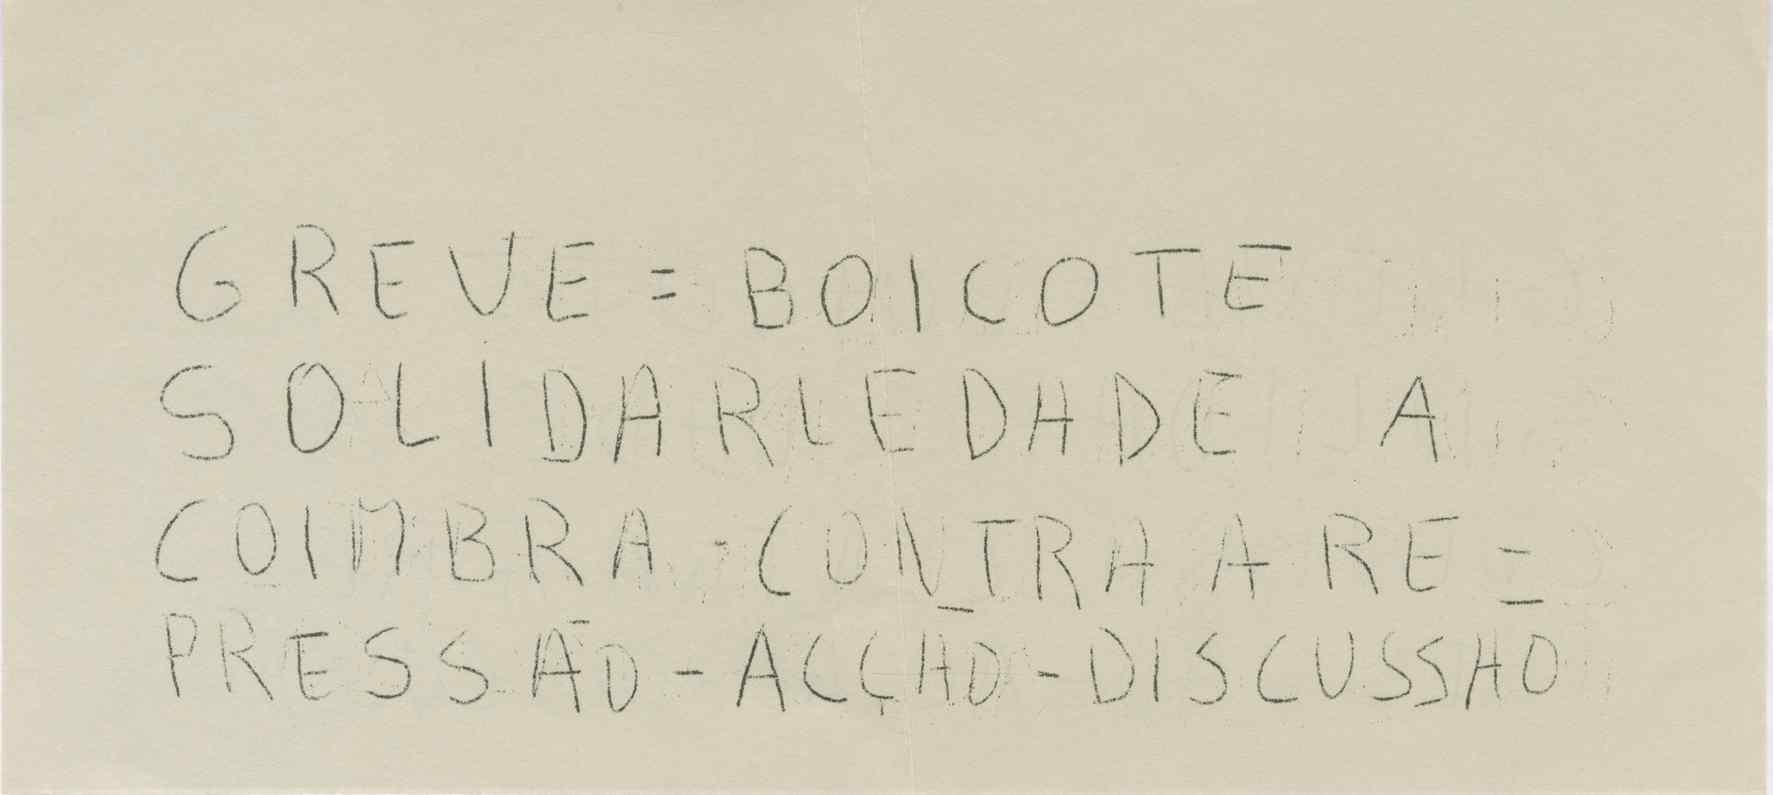 GREVE = BOICOTE
SOLIDARIEDADE A
COIMBRA - CONTRA A RE =
PRESSÃO - ACÇÃO - DISCUSSAO